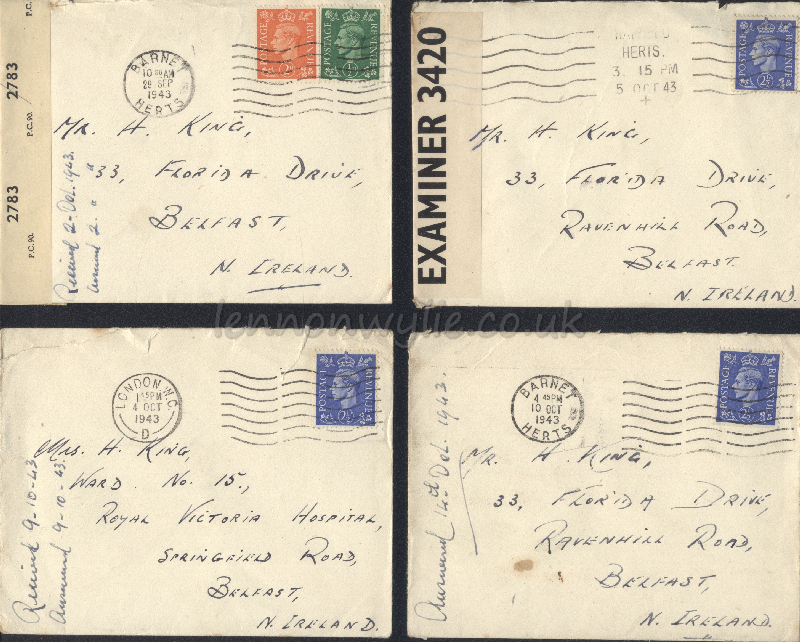 P.C. 90.
2783
P.C. 90.
2783
P.C. 90.
BARNET
10 30 AM
29 SEP
1943
HERTS
POSTAGE REVENUE
POSTAGE REVENUE
MR. H. KING,
33, FLORIDA DRIVE,
BELFAST,
N. IRELAND.
Received 2-Oct. 1943.
Answered 2. " "
EXAMINER 3420
HERTS.
3. 15 PM
5 OCT 43
POSTAGE REVENUE
2½D
MR. H. KING,
33, FLORIDA DRIVE,
RAVENHILL ROAD,
BELFAST.
N. IRELAND.
lennonwylie.co.uk
LONDON W.C.
PM
4 OCT
1943
D
POSTAGE REVENUE
2½D
MRS. H. KING,
WARD NO. 15.,
ROYAL VICTORIA HOSPITAL,
SPRINGFIELD ROAD,
BELFAST,
N. IRELAND.
Received 9-10-43
Answered 9-10-43.
BARNET
4 45 PM
10 OCT
1943
HERTS
POSTAGE REVENUE
2½D
MR. H KING,
33, FLORIDA DRIVE,
RAVENHILL ROAD,
BELFAST,
N. IRELAND.
Answered 14th Oct. 1943.